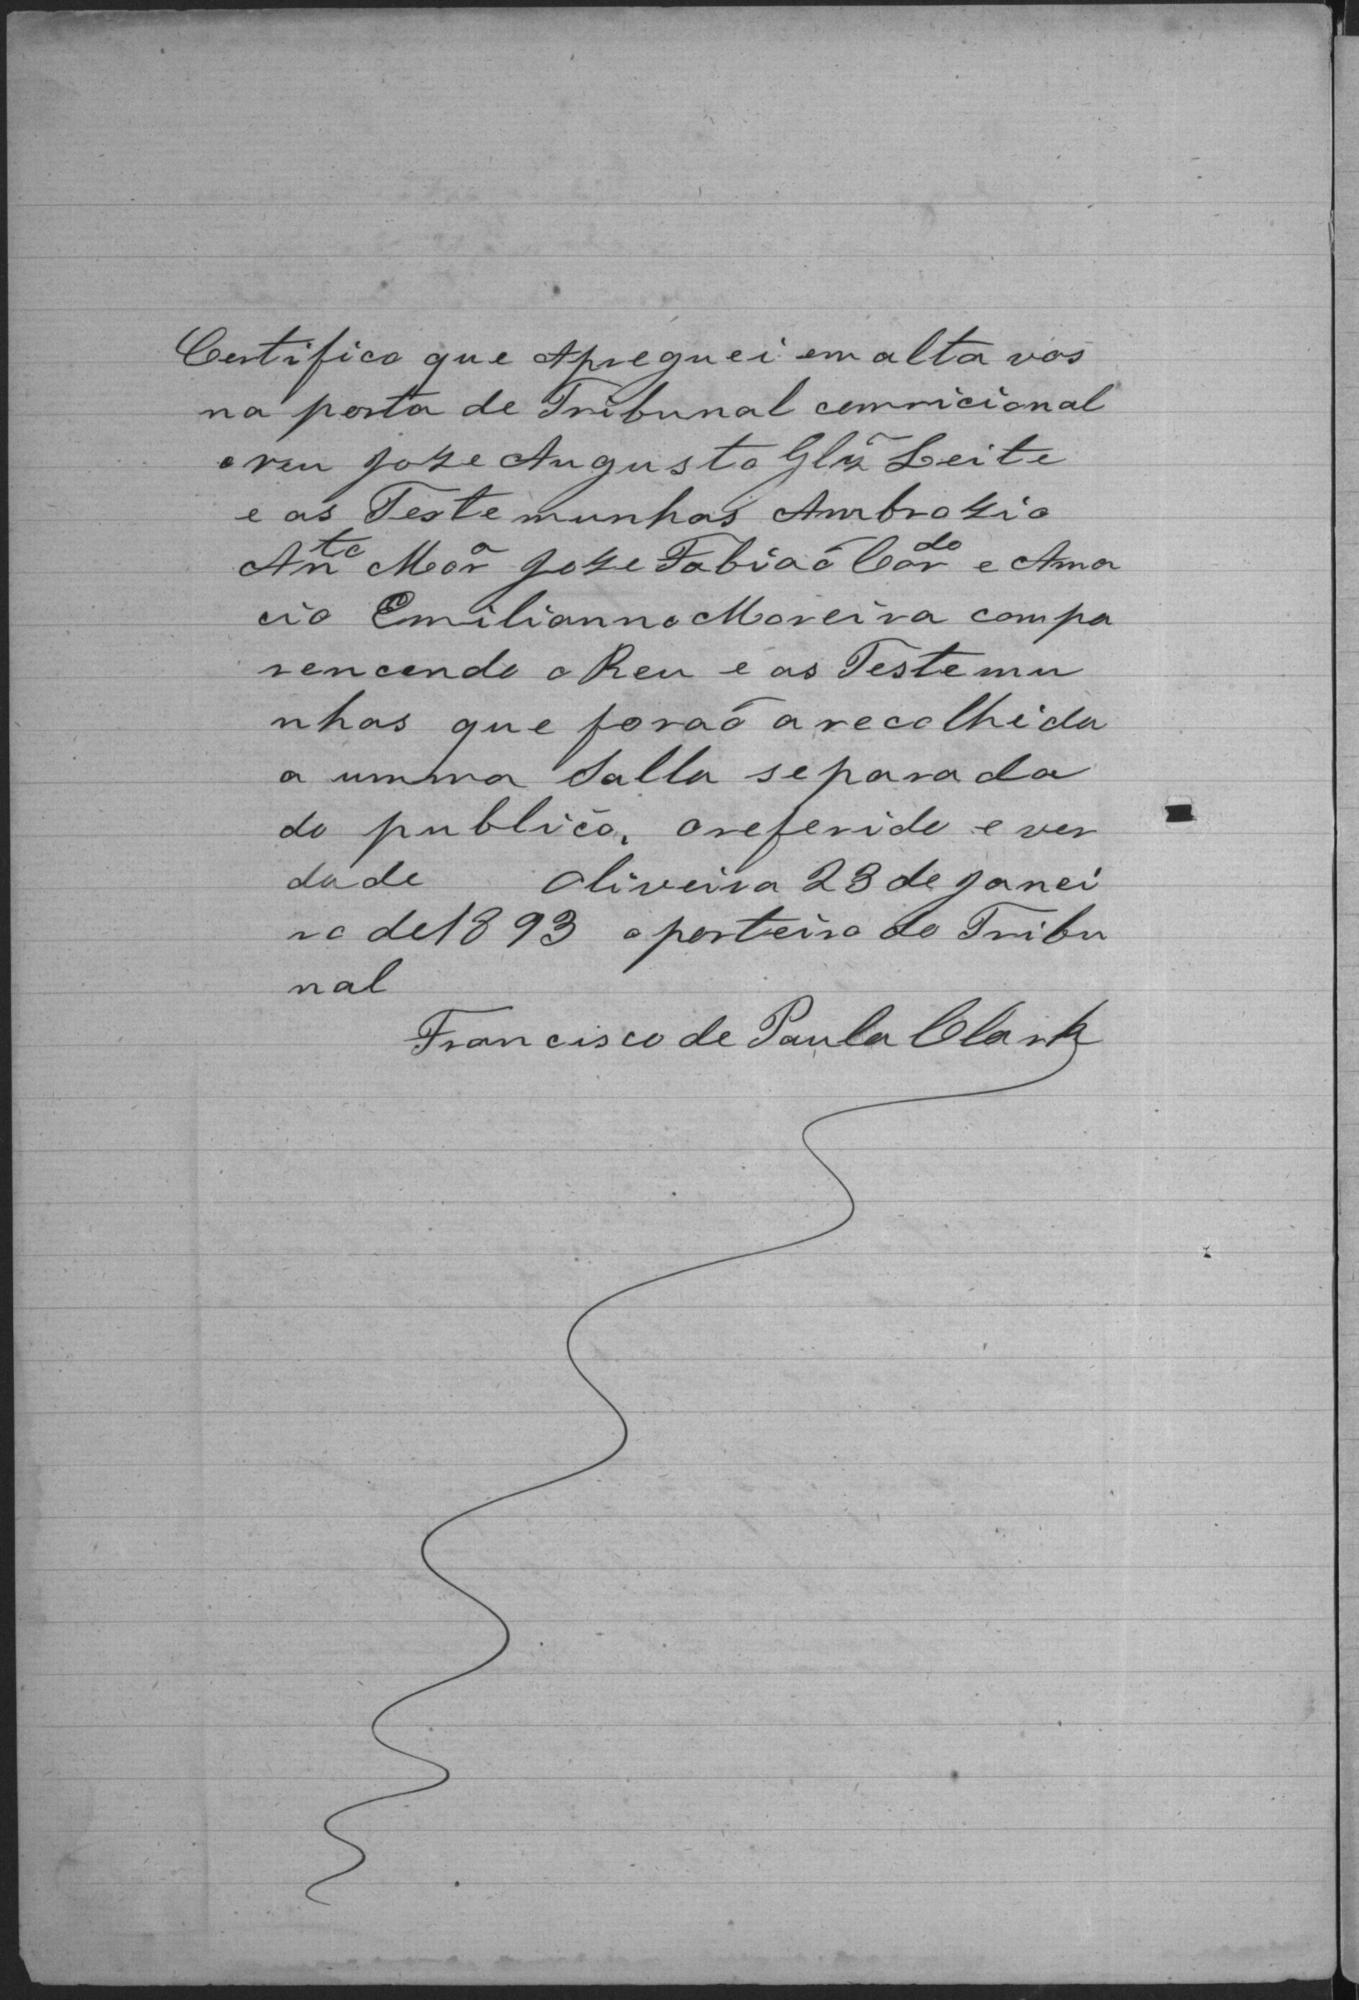 Certifico que Apreguei em alta vos
na porta de Tribunal corricional
o reu Joze Augusto Glz Leite
e as Testemunhas Ambrozio
Antº Morª Joze Fabiaõ Cardo e Ama
cio Emilianno Moreira compa
rencendo o Reu e as Testemu
nhas que foraõ a recolhida
a umma Salla separada
do publico. o referido e ver
dade Oliveira 23 de Janei
ro de 1893 o porteiro do Tribu
nal
Francisco de Paula Clark